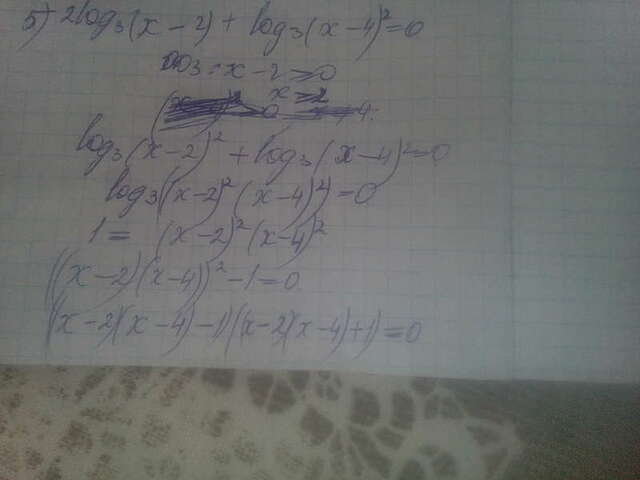 5) 2log₃(x-2) + log₃(x-4)²=0
ООЗ: x-2≥0
x≥2
log₃(x-2)² + log₃(x-4)²=0
log₃((x-2)²(x-4)²)=0
1= (x-2)²(x-4)²
((x-2)(x-4))²-1=0
((x-2)(x-4)-1)((x-2)(x-4)+1)=0